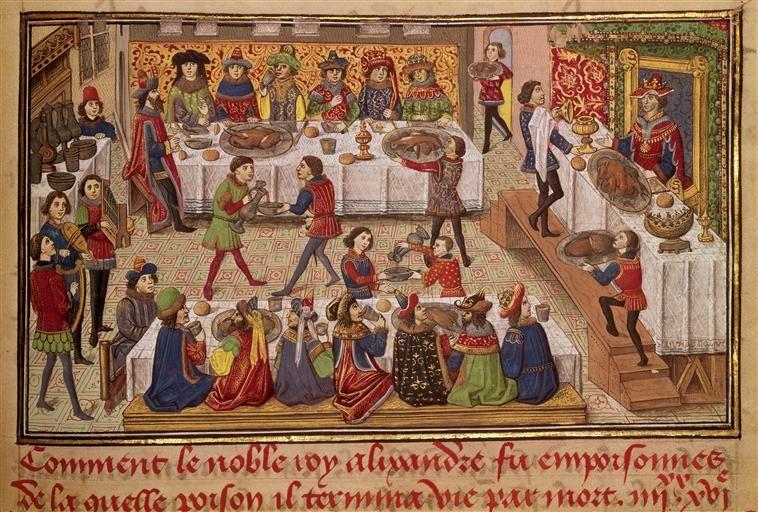 Comment le noble roy alixandre fu empoisonnes
de la quelle poison il termina vie par mort. iiijxx xvje